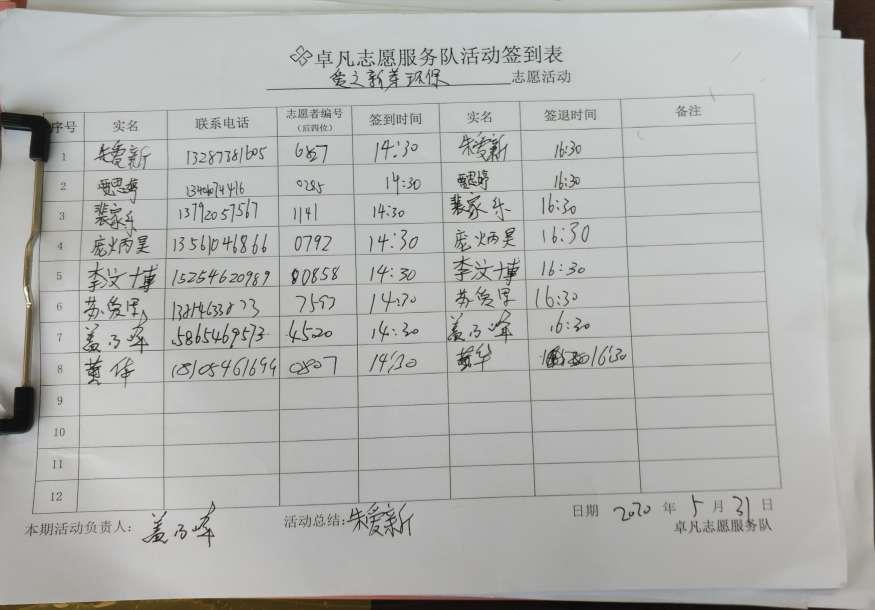 卓凡志愿服务队活动签到表
爱之新芽环保 志愿活动
序号 实名 联系电话 志愿者编号(后四位) 签到时间 实名 签退时间 备注
1 朱爱新 13287381605 14:30 朱爱新 16:30
2 贾思婷 0285 14:30 贾思婷 16:30
3 裴家乐 13792057567 1141 14:30 裴家乐 16:30
4 庞炳昊 13561046866 0792 14:30 庞炳昊 16:30
5 李汶博 15254620989 0858 14:30 李汶博 16:30
6 14:30 16:30
7 盖乃峰 5865469513 4520 14:30 盖乃峰 16:30
8 黄华 18105461694 0807 14:30 黄华 16:30
9
10
11
12
本期活动负责人: 盖乃峰 活动总结: 朱爱新 日期 2020 年 5 月 31 日
卓凡志愿服务队